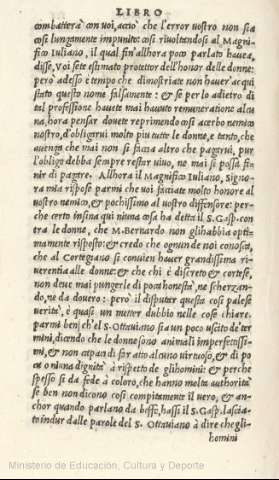 LIBRO
combatterà con voi, acciò che l'error uostro non sia
cosi lungamente impunito: cosi riuoltandosi al Magni-
fico Iuliano, il qual fin'allhora poco parlato hauea,
disse, Voi sete estimato protettor dell'honor delle donne:
però adesso è tempo che dimostriate non hauer'acqui
stato questo nome falsamente: & se per lo adietro di
tal professione hauete mai hauuto remuneratione alcu
na, hora pensar douete reprimendo cosi acerbo nemico
nostro, d'obligarui molto piu tutte le donne, e tanto, che
auenga che mai non si faccia altro che pagarui, pur
l'obligo debba sempre restar uiuo, ne mai si possa fi-
nir di pagare. Allhora il Magnifico Iuliano, Signo-
ra mia rispose parmi che voi facciate molto honore al
uostro nemico, & pochissimo al uostro diffensore: per-
che certo insina qui niuna cosa ha detta il S. Gasp. con
tra le donne, che M. Bernardo non glihabbia opti-
mamente risposto: & credo che ognun de noi conosca,
che al Cortegiano si conuien hauer grandissima ri-
uerentia alle donne: & che chi è discreto & cortese,
non deue mai pungerle di poca honestà, ne scherzan-
do, ne da douero: però il disputar questa cosi palese
uerità, è quasi un metter dubbio nelle cose chiare.
parmi ben, ch'el S. Ottauiano sia un poco uscito de'ter
mini, dicendo che le donne sono animali imperfettissi-
mi, & non capaci di far atto alcuno virtuoso, & di po
ca o niuna dignità à rispetto de glihomini: & perche
spesso si da fede à coloro, che hanno molta authorità
se ben non dicono cosi compitamente il vero, & an-
chor quando parlano da beffe, hassi il S. Gasp. lascia-
to indur dalle parole del S. Ottauiano à dire che gli
homini
Ministerio de Educación, Cultura y Deporte